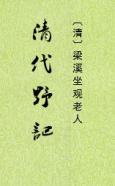 〔清〕梁溪坐观老人
清代野記